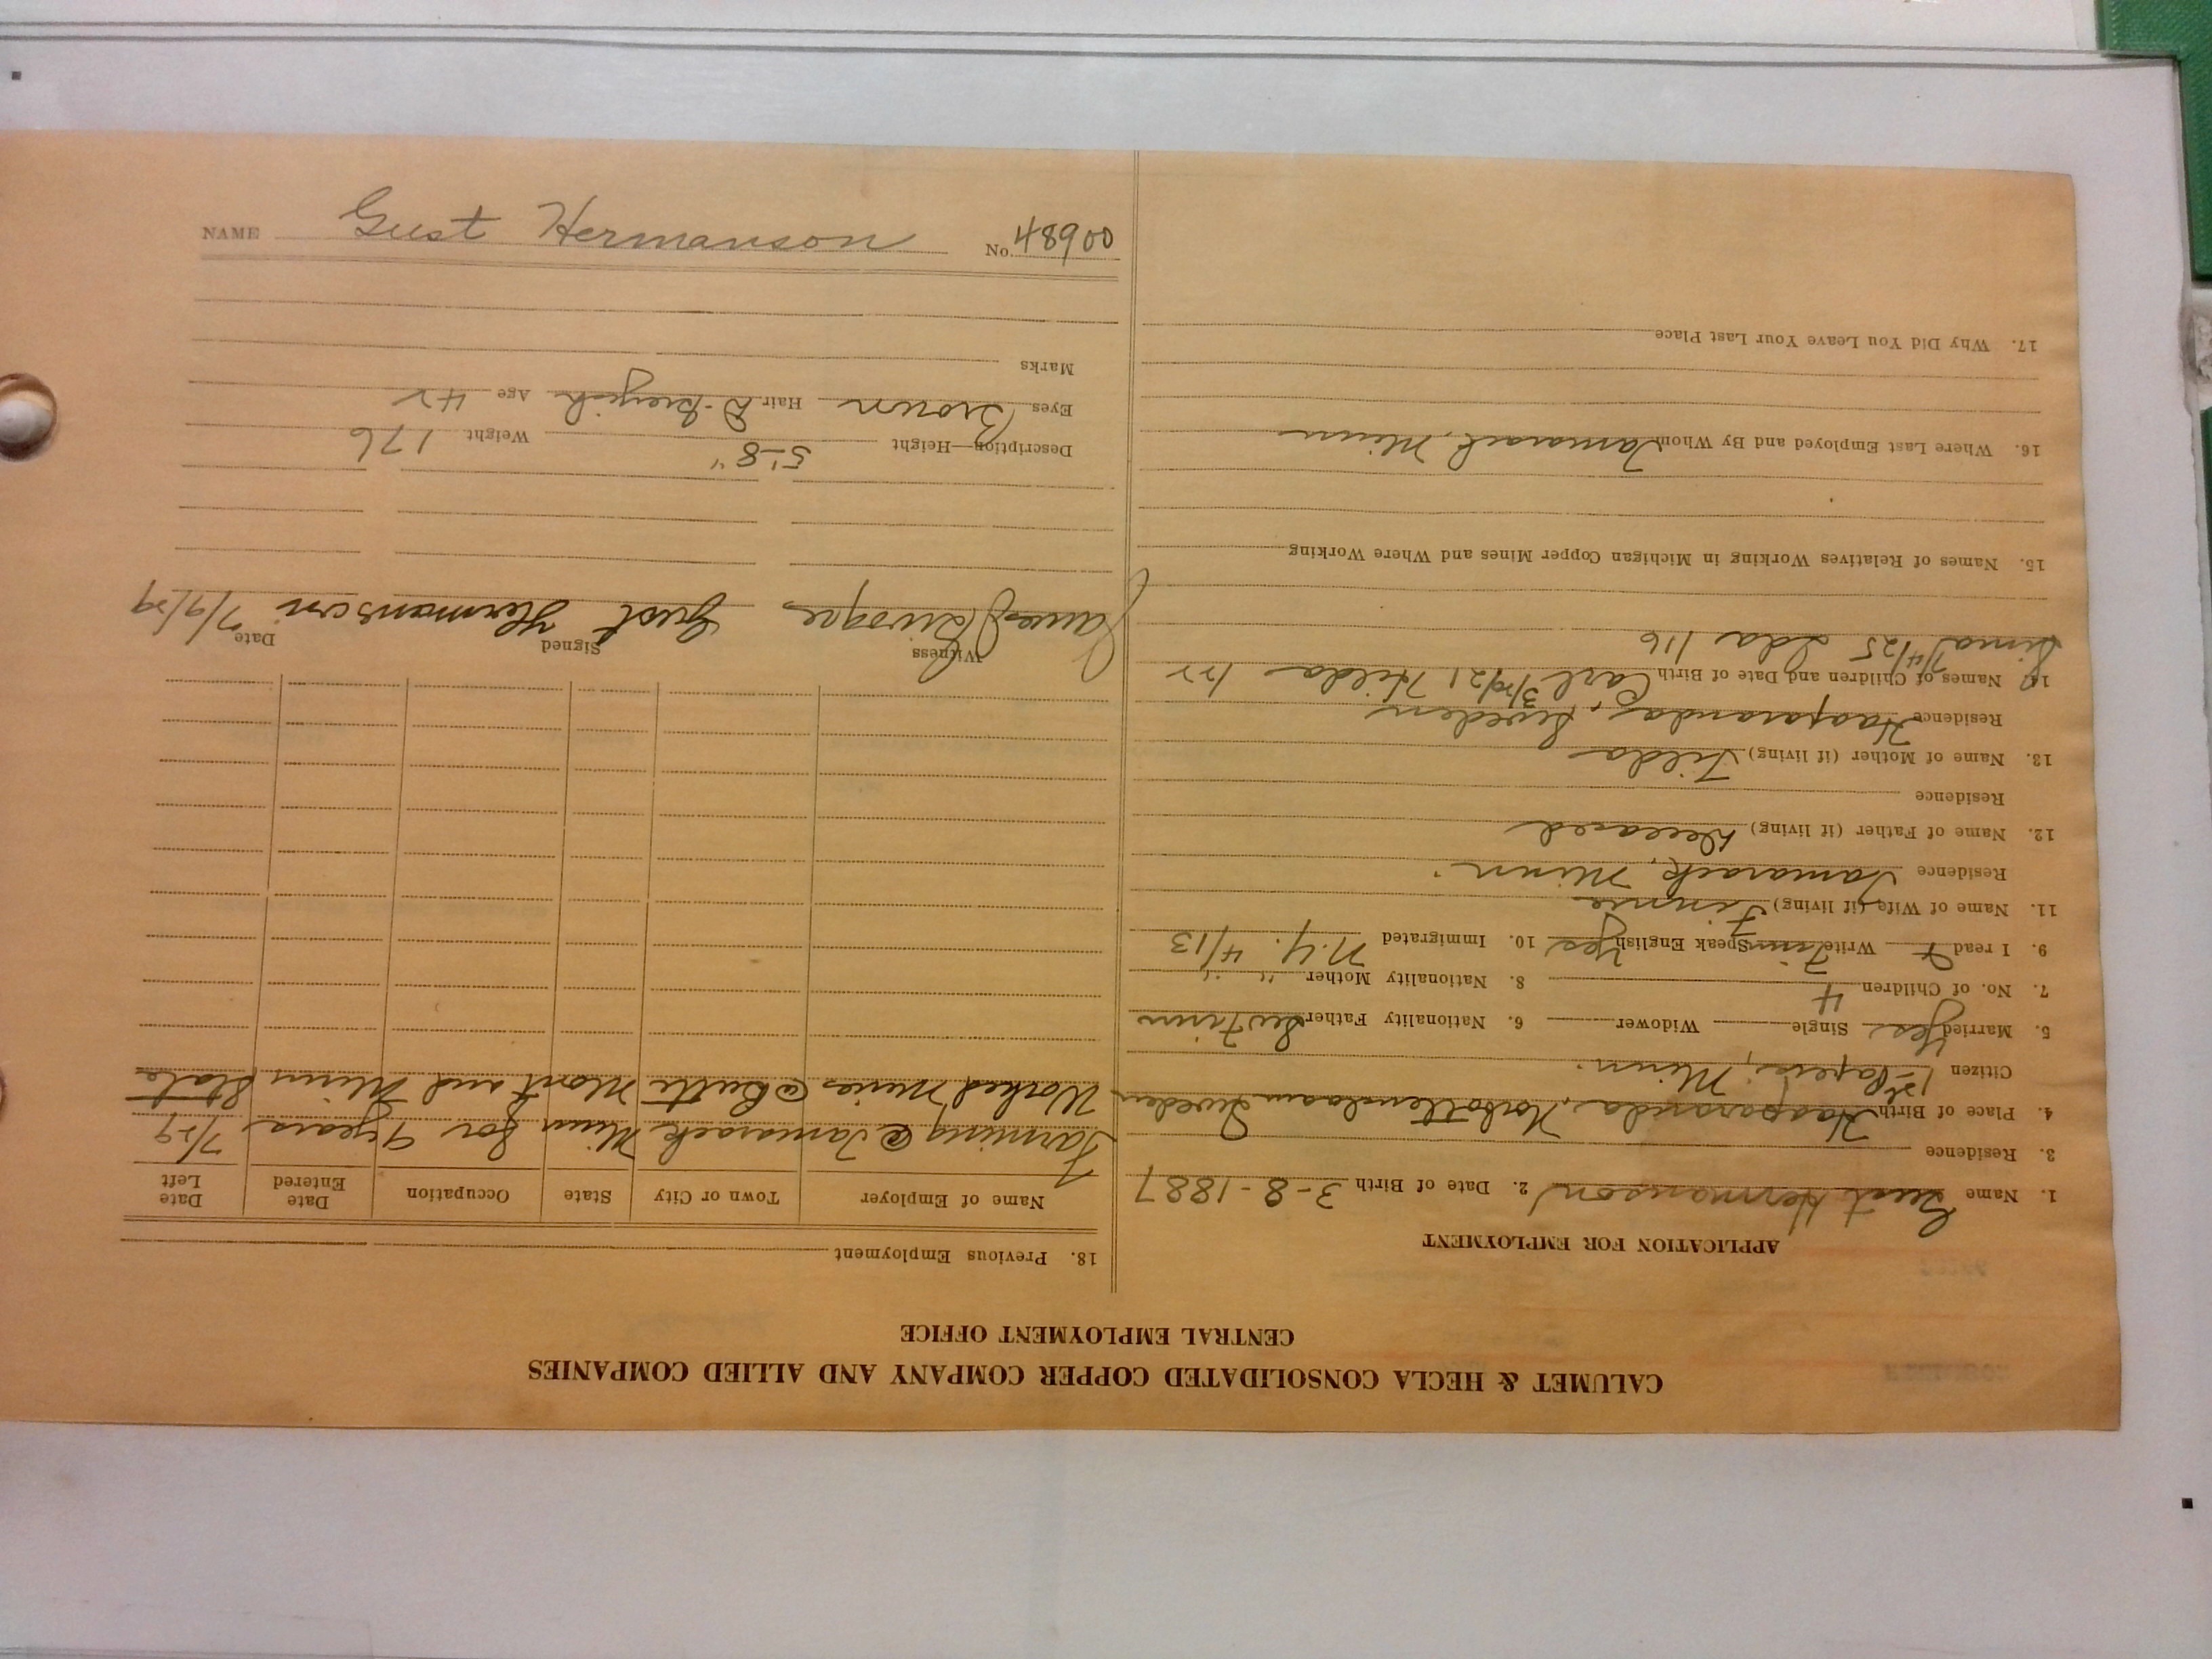 CALUMET & HECLA CONSOLIDATED COPPER COMPANY AND ALLIED COMPANIES
CENTRAL EMPLOYMENT OFFICE
APPLICATION FOR EMPLOYMENT
1. Name Gust Hermanson 2. Date of Birth 3-8-1887
3. Residence
4. Place of Birth Haaparanda, Norbottenslaan Sweden
Citizen 1st Papers, Minn.
5. Married Yes Single Widower 6. Nationality Father Sw Finn
7. No. of Children 4 8. Nationality Mother " "
9. I read & Write Finn Speak English Yes 10. Immigrated N.Y. 4/13
11. Name of Wife (if living)
Residence Tamarack, Minn.
12. Name of Father (if living) Deceased
Residence
13. Name of Mother (if living) Tilda
Residence Haaparanda, Sweden
14. Names of Children and Date of Birth Carl 3/20/21 Hilda 1/22
7/4/25 Ida 1/6
15. Names of Relatives Working in Michigan Copper Mines and Where Working
16. Where Last Employed and By Whom Tamarack, Minn
17. Why Did You Leave Your Last Place
18. Previous Employment
Name of Employer Town or City State Occupation Date Entered Date Left
Farming @ Tamarack Minn for 9 years 7/29
Worked Mines @ Butte Mont and Minn State
Witness Signed Date
James Gust Hermanson 7/9/29
Description—Height 5'-8" Weight 176
Eyes Brown Hair D. Greyish Age 42
Marks
NAME Gust Hermanson No. 48900